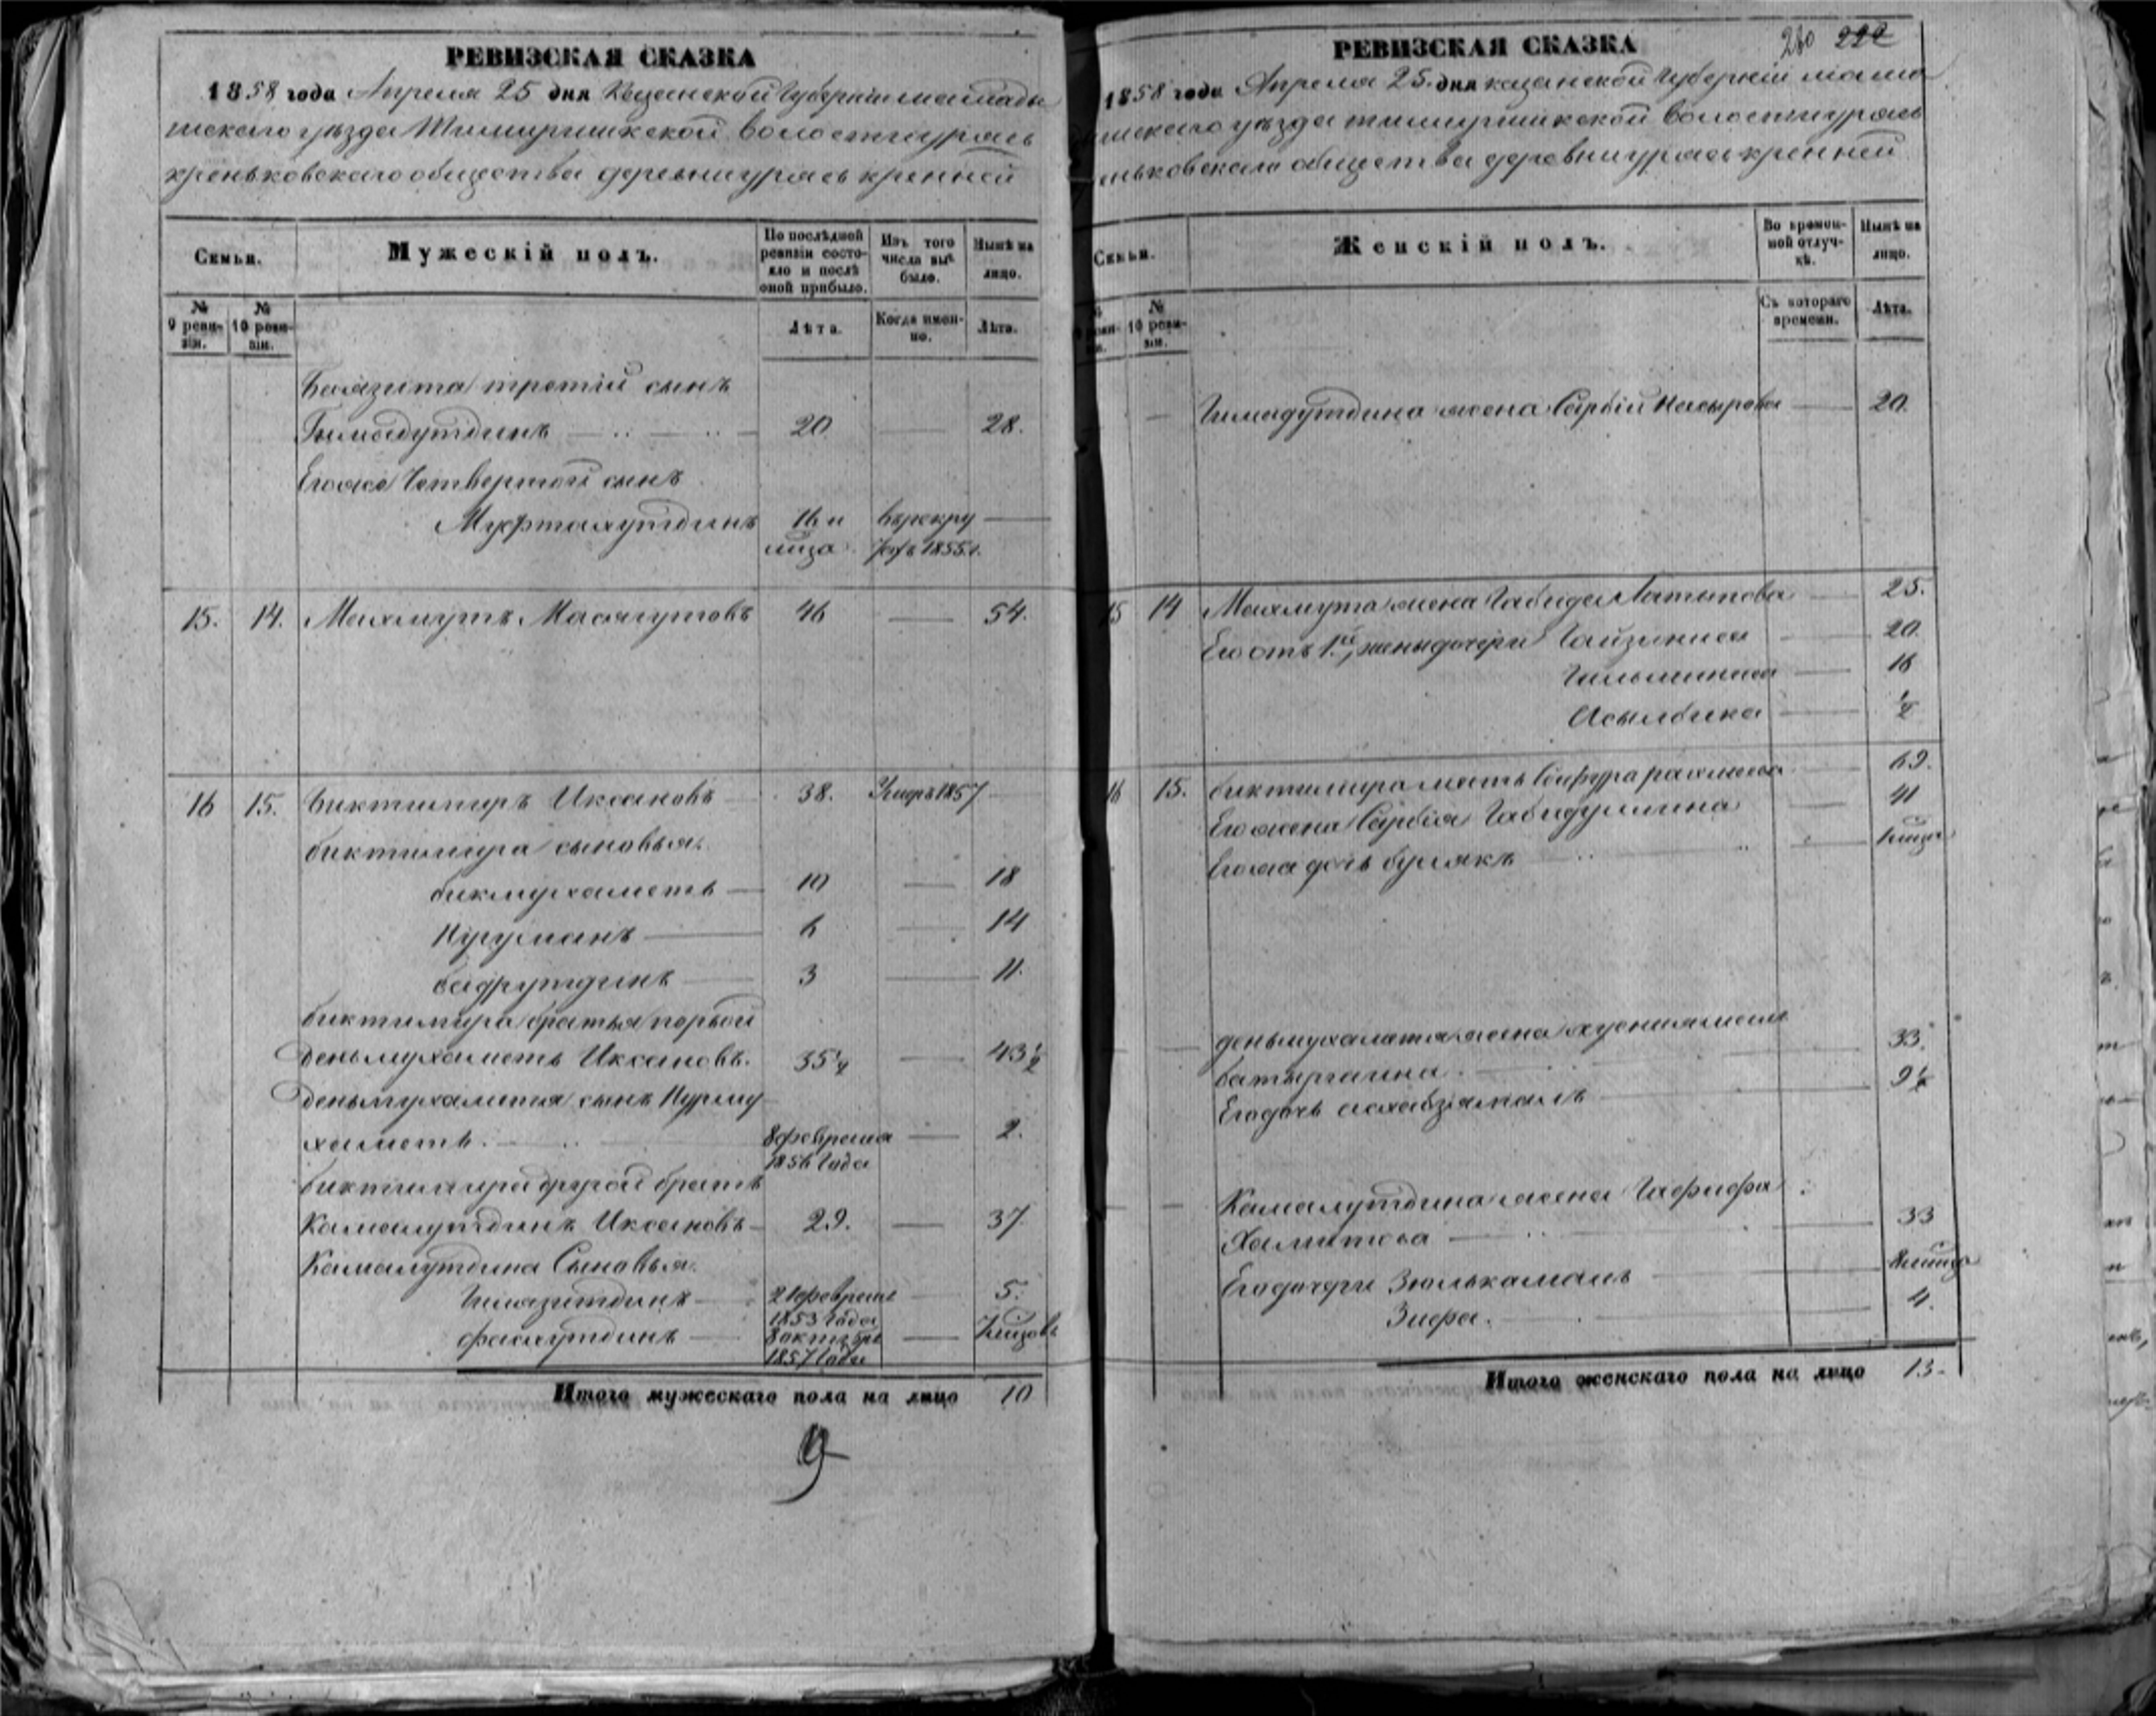 РЕВИЗСКАЯ СКАЗКА
1858 года Апреля 25 дня Казанской Губернии мамады
шскаго уѣзда волости урясь
креньковскаго общества деревни урясь кренней
Семьи.
Мужескій полъ.
По послѣдней ревизіи состояло и послѣ оной прибыло.
Изъ того числа выбыло.
Нынѣ на лицо.
№ 9 ревизіи.
№ 10 ревизіи.
Лѣта.
Когда именно.
Лѣта.
Баязита третій сынъ
Гимадутдинъ 20 28.
Егоже Четвертой сынъ
Муфтахутдинъ 16 и врекру
1855 г.
15. 14. Махмутъ Масягутовъ 46 54.
16 15. Биктимиръ Иксановъ 38. Умеръ 1857
биктимира сыновья.
бикмухаметъ 10 18
Нугуманъ 6 14
бадрутдинъ 3 11.
биктимира братья первой
деньмухаметъ Иксановъ. 35 43 1/2
деньмухаметя сынъ Нурму
хаметъ. 8 февраля 2.
1856 года
биктимира другой братъ
Камалутдинъ Иксановъ 29. 37.
Камалутдина Сыновья.
21 февраля 5.
1853 года
8 октября
1857 года
Итого мужескаго пола на лицо 10
9
РЕВИЗСКАЯ СКАЗКА 280 222
1858 года Апреля 25. дня казанской Губерніи мама
шскаго уѣзда волости урясь
ньковскаго общества деревни урясь кренней
Семьи.
Женскій полъ.
Во временной отлучкѣ.
Нынѣ на лицо.
№ 10 ревизіи.
Съ котораго времени.
Лѣта.
Гимадутдина жена Сарбіи Насырова 20.
15 14 Махмута жена Габида Латыпова 25.
Его отъ 1й жены дочери Гайзиниса 20.
Гильминиса 16
Асылбика 1/2
16 15. биктимира мать 69.
Его жена Сарбія Габидуллина 41
Егожа дочь булякъ
деньмухаметя жена
батыршина. 33.
Его дочь 9 1/2
Камалутдина жена Гафифа
Халитова 33
Его дочери Зюлькамалъ
Зифа. 4.
Итого женскаго пола на лицо 13.